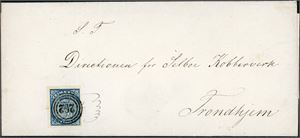 S. T.
Directionen for Selbo Kobberværk
Trondhjem
22